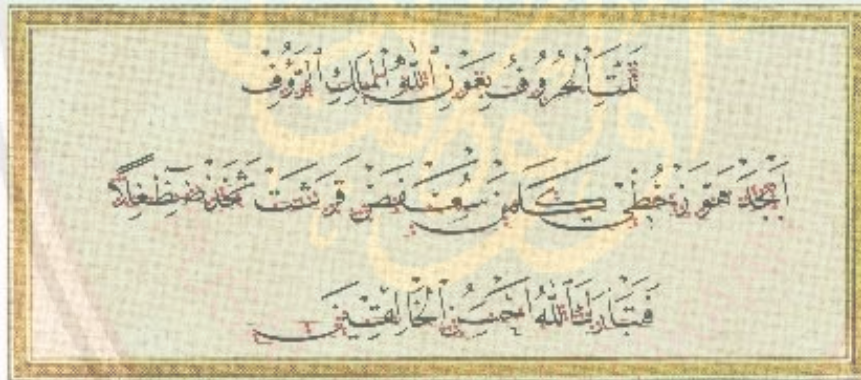 تَمَّتِ الْحُرُوفُ بِعَوْنِ اللّٰهِ الْمَلِكِ الرَّؤُفِ
اَبْجَدْ هَوَّزْ حُطِّى كَلَمَنْ سَعْفَصْ قَرَشَتْ ثَخَذْ ضَظَغْلًا
فَتَبَارَكَ اللّٰهُ اَحْسَنُ الْخَالِقِينَ